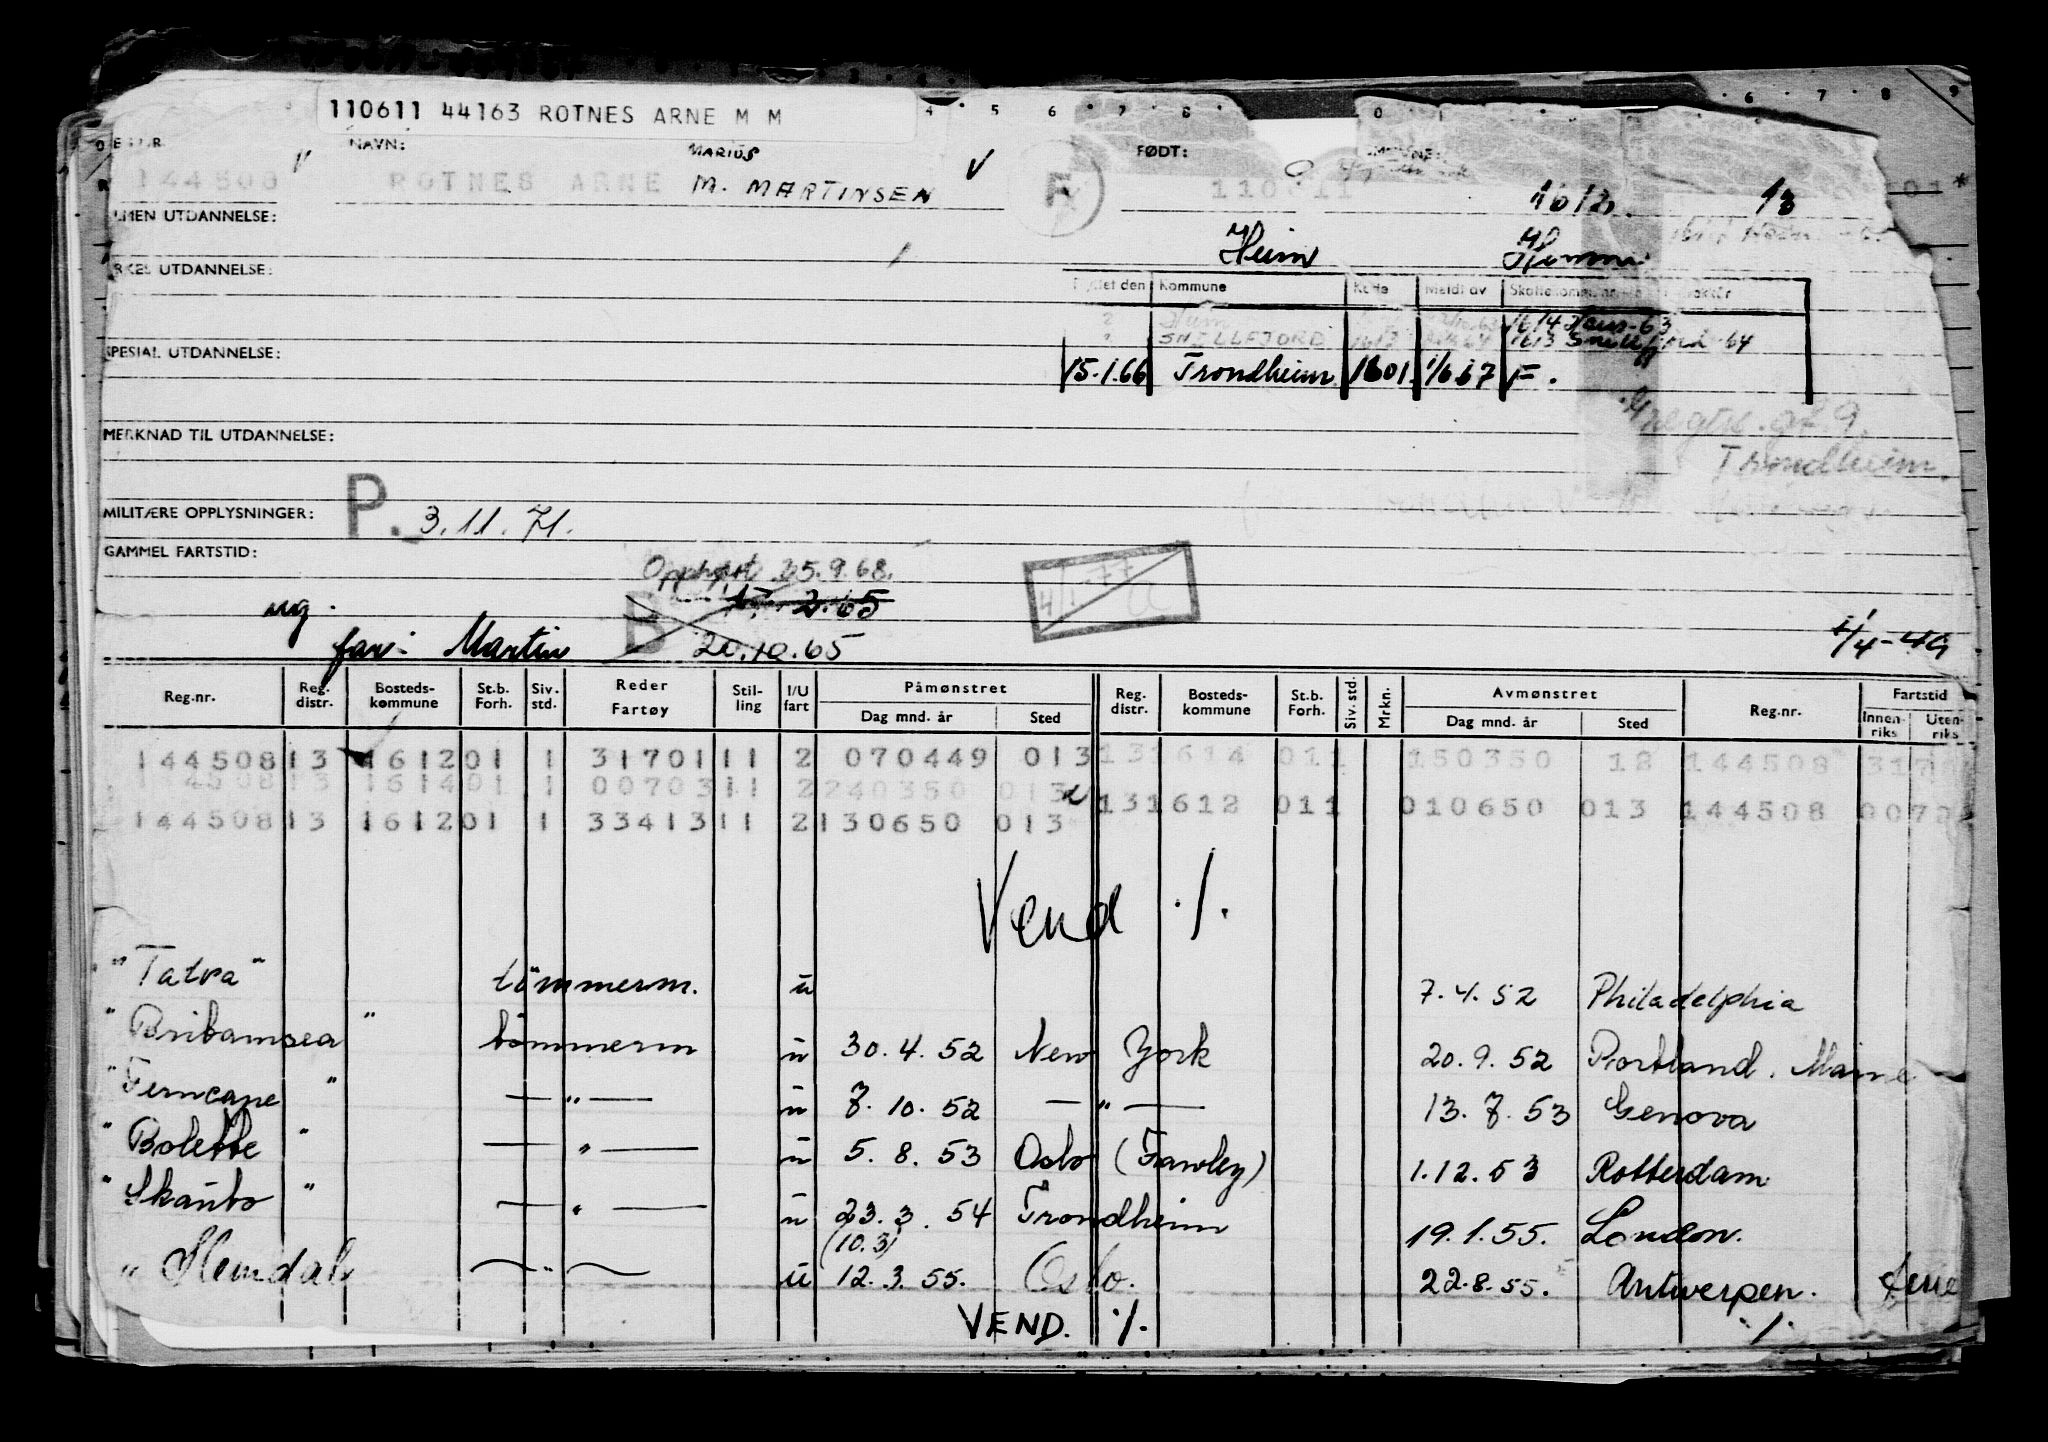 110611 44163 ROTNES ARNE M M
NAVN: MARIUS FØDT:
144508 ROTNES ARNE M. MARTINSEN F 110611 1612 13
ALMEN UTDANNELSE:
Heim
UTDANNELSE:
Kommune Meldt av
1614 63
SNILLFJORD 1613 Snillfjord 64
SPESIAL UTDANNELSE:
15.1.66 Trondheim 1601 1/6 67 F.
gt. 9.
MERKNAD TIL UTDANNELSE:
Trondheim
MILITÆRE OPPLYSNINGER: P. 3.11.71.
GAMMEL FARTSTID:
Opphørt 25.9.68.
17. 2.65
ug.
far: Martin B 20.10.65 1/4-49
Reg.nr. Reg. distr. Bosteds-kommune St.b. Forh. Siv. std. Reder Fartøy Stil-ling I/U fart Påmønstret Dag mnd. år Sted Reg. distr. Bosteds-kommune St.b. Forh. Siv. std. Mrkn. Avmønstret Dag mnd. år Sted Reg.nr. Fartstid Innen-riks Uten-riks
144508 13 1612 01 1 31701 11 2 070449 013 13 1614 011 150350 12 144508 317
44508 13 1614 01 1 00703 11 2 240350 013 13 1612 011 010650 013 144508 007
144508 13 1612 01 1 33413 11 2 130650 013
Vend ./.
"Tatra" tømmerm. u 7.4.52 Philadelphia
"Bribamsea" tømmerm u 30.4.52 New York 20.9.52 Portland. Maine
"Ferncape" — " — u 7.10.52 — " — 13.7.53 Genova
"Bolette" — " — u 5.8.53 Oslo (Fawley) 1.12.53 Rotterdam
"Skaubo" — " — u 23.3.54 Trondheim 19.1.55. London.
(10.3)
" Slemdal — " — u 12.3.55. Oslo. 22.8.55. Antwerpen.
VEND. ./. ./.